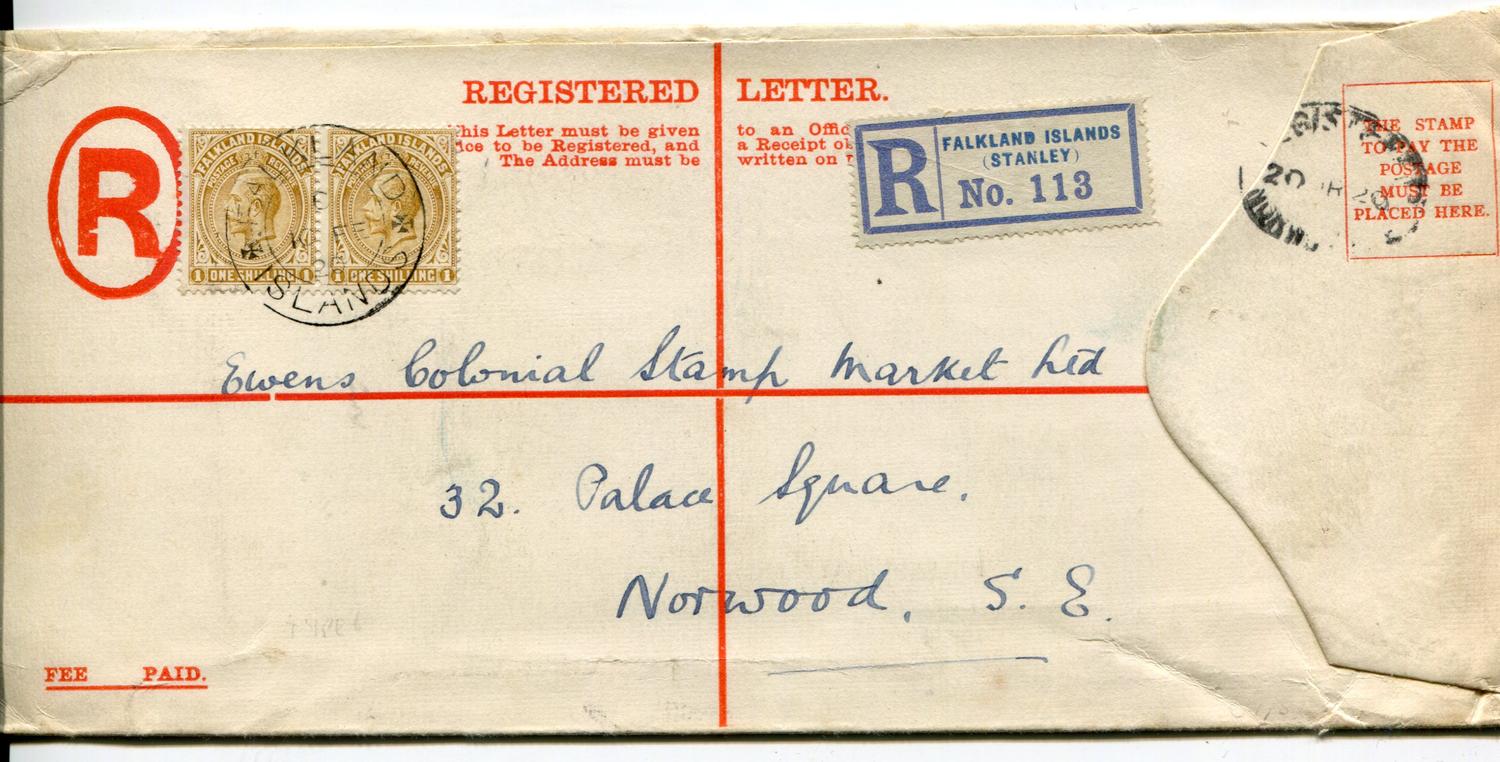 REGISTERED LETTER.
his Letter must be given to an
ice to be Registered, and a Receipt
The Address must be written on
R
FALKLAND ISLANDS
POSTAGE REVENUE
1 ONE SHILLING 1
FALKLAND ISLANDS
POSTAGE REVENUE
1 ONE SHILLING 1
ISLANDS
R
FALKLAND ISLANDS
(STANLEY)
No. 113
THE STAMP
TO PAY THE
POSTAGE
MUST BE
PLACED HERE.
Ewens Colonial Stamp Market Ltd
32. Palace Square.
Norwood, S. E.
FEE PAID.